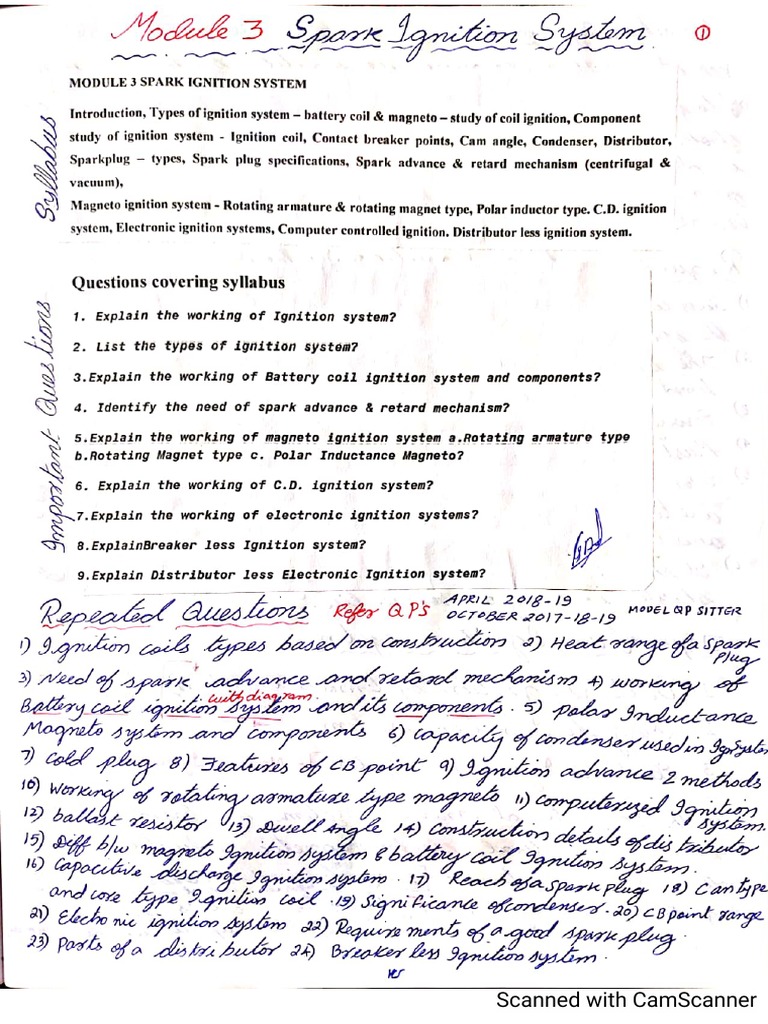 Module 3 Spark Ignition System ①
MODULE 3 SPARK IGNITION SYSTEM
Syllabus
Introduction, Types of ignition system – battery coil & magneto – study of coil ignition, Component
study of ignition system - Ignition coil, Contact breaker points, Cam angle, Condenser, Distributor,
Sparkplug – types, Spark plug specifications, Spark advance & retard mechanism (centrifugal &
vacuum),
Magneto ignition system - Rotating armature & rotating magnet type, Polar inductor type. C.D. ignition
system, Electronic ignition systems, Computer controlled ignition. Distributor less ignition system.
Important Questions
Questions covering syllabus
1. Explain the working of Ignition system?
2. List the types of ignition system?
3.Explain the working of Battery coil ignition system and components?
4. Identify the need of spark advance & retard mechanism?
5.Explain the working of magneto ignition system a.Rotating armature type
b.Rotating Magnet type c. Polar Inductance Magneto?
6. Explain the working of C.D. ignition system?
7.Explain the working of electronic ignition systems?
8.ExplainBreaker less Ignition system?
9.Explain Distributor less Electronic Ignition system?
Repeated Questions Refer QP's APRIL 2018-19
OCTOBER 2017-18-19 MODEL QP SITTER
1) Ignition coils types based on construction 2) Heat range of a spark
plug
3) Need of spark advance and retard mechanism 4) working of
with diagram.
Battery coil ignition system and its components. 5) Polar Inductance
Magneto system and components 6) capacity of condenser used in Ign System
7) cold plug 8) Features of CB point 9) Ignition advance 2 methods
10) Working of rotating armature type magneto 11) computerized Ignition
system.
12) ballast resistor 13) Dwell Angle 14) Construction details of distributor
15) Diff b/w magneto Ignition system & battery coil Ignition system.
16) Capacitive discharge Ignition system. 17) Reach of a spark plug 18) Can type
and core type Ignition coil. 19) Significance of condenser. 20) CB point range
21) Electronic ignition system 22) Requirements of a good spark plug.
23) Parts of a distributor 24) Breaker less Ignition system.
Scanned with CamScanner